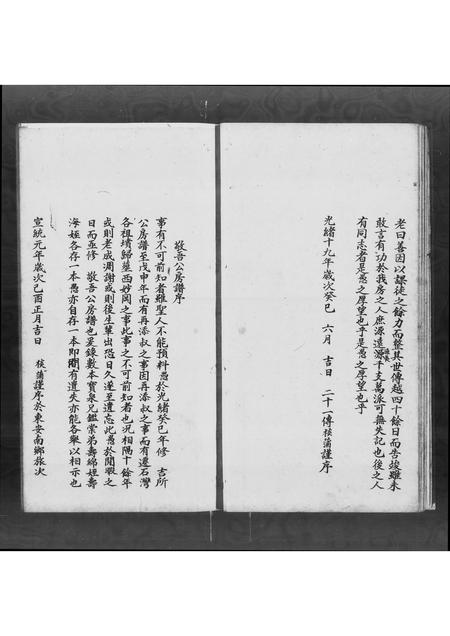 老曰善因以課徒之餘力而整其世傳越四十餘日而告竣雖未
敢言有功於我房之人庶源遠流長千支萬派可無失記也後之人
有同志者是愚之厚望也乎是愚之厚望也乎
光緒十九年歲次癸巳 六月 吉日 二十一傳 蒲謹序
敬吾公房譜序
事有不可前知者雖聖人不能預料愚於光緒癸巳年修 吉所
公房譜至戊申年而有再添叔之事因再添叔之事而有遷石灣
各祖墳歸葬西妙岡之事此事之不可前知者也況相隔十餘年
或則老成凋謝或則後生輩出恐日久遂至遺忘此愚於閒暇之
日而亟修 敬吾公房譜也爰錄數本寶泉兄鑑棠弟壽綿姪壽
海姪各存一本愚亦自存一本即間有遺失亦能各舉以相示也
宣統元年歲次己酉正月吉日 蒲謹序於東安南鄉旅次